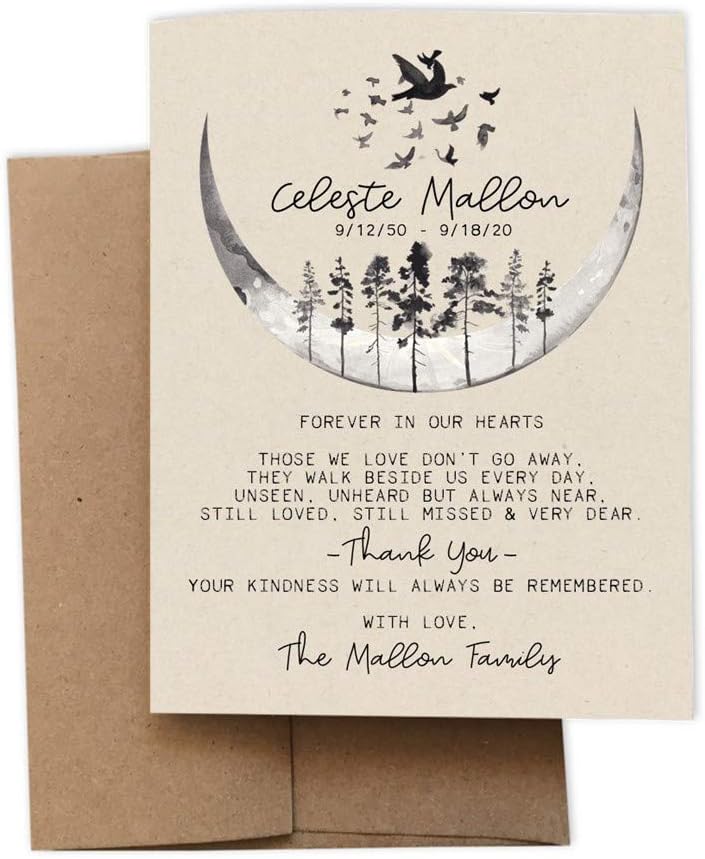 Celeste Mallon
9/12/50 - 9/18/20
FOREVER IN OUR HEARTS
THOSE WE LOVE DON'T GO AWAY,
THEY WALK BESIDE US EVERY DAY,
UNSEEN, UNHEARD BUT ALWAYS NEAR,
STILL LOVED, STILL MISSED & VERY DEAR.
-Thank You-
YOUR KINDNESS WILL ALWAYS BE REMEMBERED.
WITH LOVE,
The Mallon Family